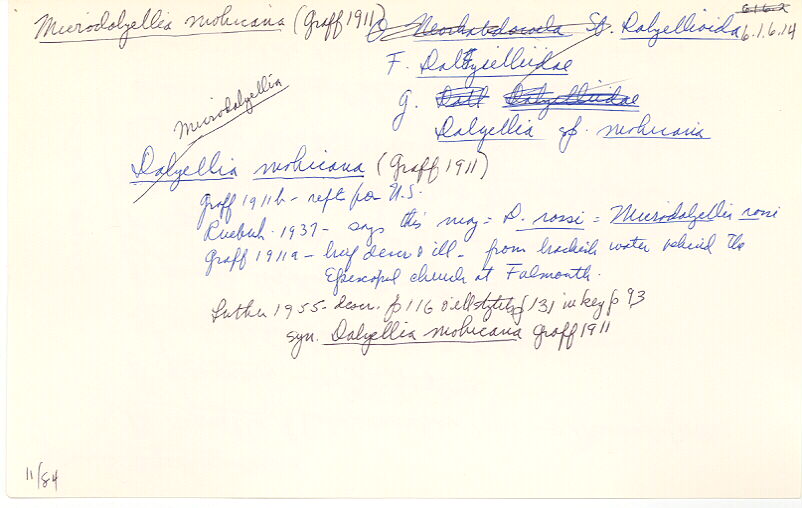 Microdalyellia mohicana (Graff 1911) O Neorhabdocoela So. Dalyellioida 6.1.6.14
F. Dalyielliidae
g. Dall Dalyelliidae
Dalyellia sp. mohicana
Microdalyellia
Dalyellia mohicana (Graff 1911)
Graff 1911b - rept for U.S.
Ruebush 1937 - says this may = D. rossi = Microdalyellia rossi
Graff 1911a - brief descr & ill - from brackish water behind the
Episcopal church at Falmouth.
Luther 1955 - descr. p 116 & ill stylets f 131 in key p 93
syn. Dalyellia mohicana Graff 1911
11/84